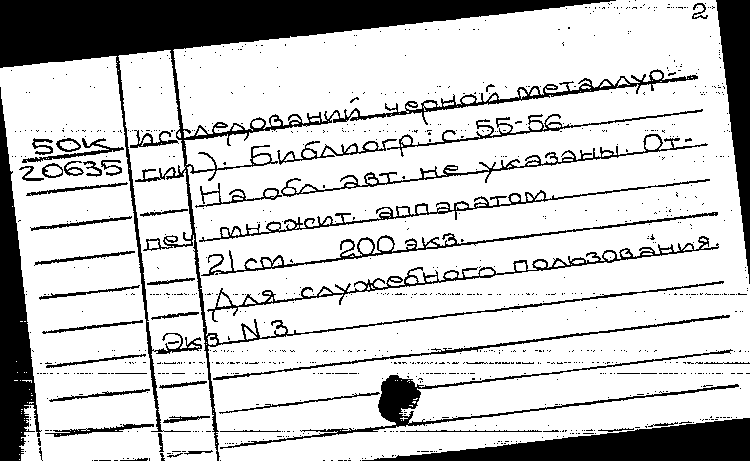 2
50К исследований черной металлур-
20635 гии). Библиогр.: с. 55-56.
На обл. авт. не указаны. От-
печ. множит. аппаратом.
21 см. 200 экз.
Для служебного пользования.
Экз. N 3.